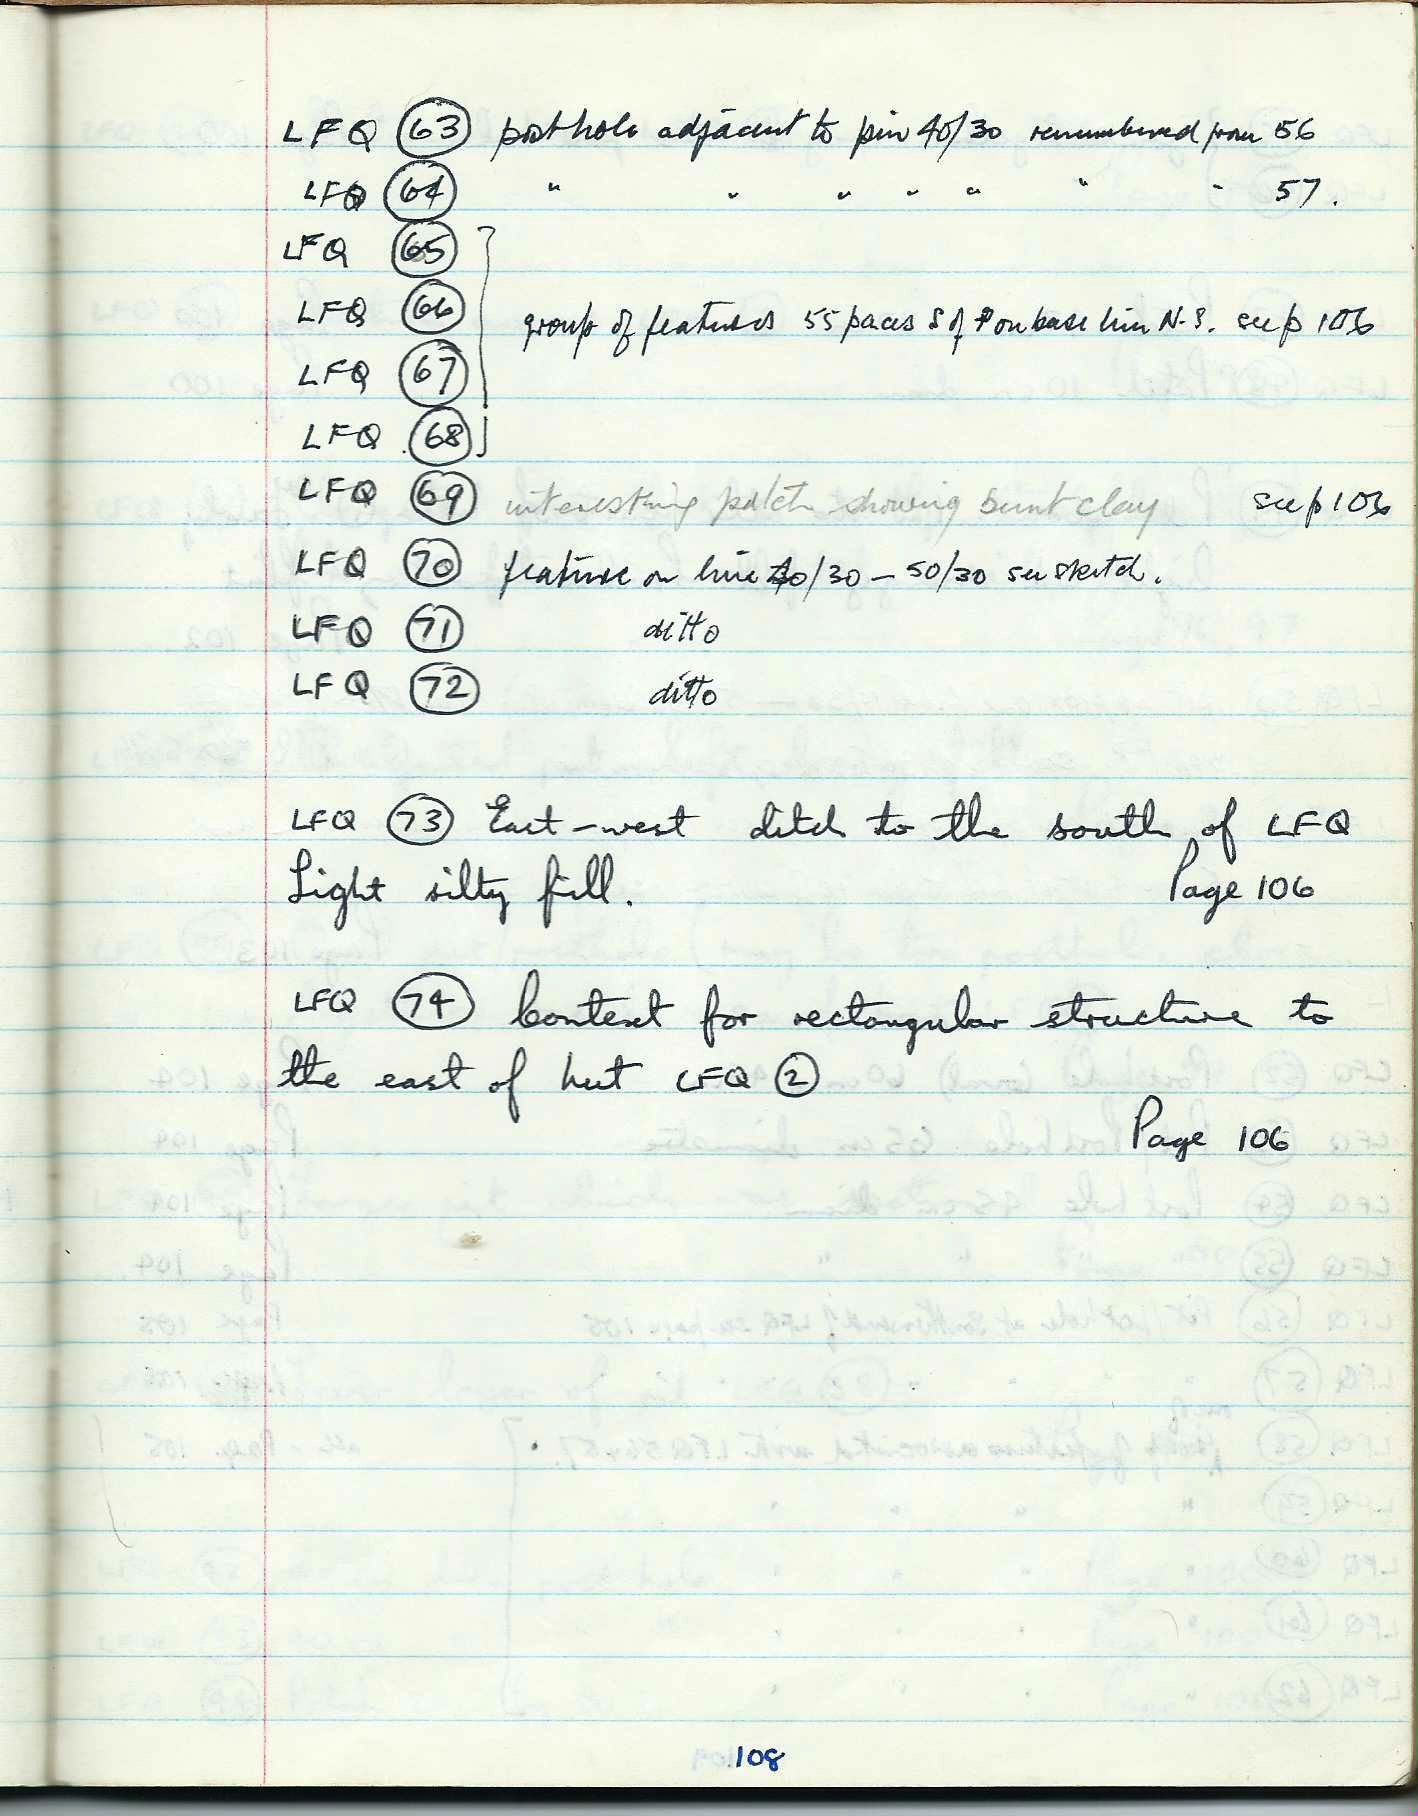 LFQ 63 posthole adjacent to pin 40/30 renumbered from 56
LFQ 64 " " " " " " " 57.
LFQ 65
LFQ 66 group of features 55 paces S of on base line N-S. see p 106
LFQ 67
LFQ 68
LFQ 69 interesting patch showing burnt clay see p 106
LFQ 70 feature on line 40/30 – 50/30 see sketch.
LFQ 71 ditto
LFQ 72 ditto
LFQ 73 East-west ditch to the south of LFQ
Light silty fill. Page 106
LFQ 74 Context for rectangular structure to
the east of hut LFQ 2
Page 106
108